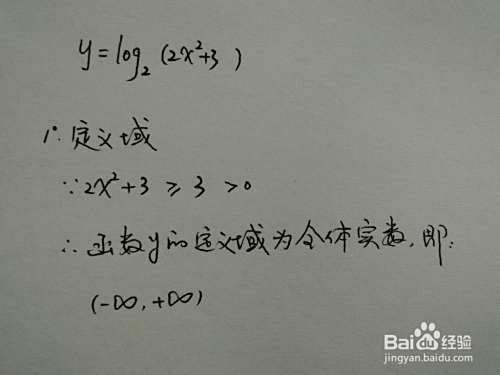 y=log₂(2x²+3)
1°. 定义域
∵2x²+3≥3>0
∴函数y的定义域为全体实数,即:
(-∞,+∞)
Baidu经验
jingyan.baidu.com